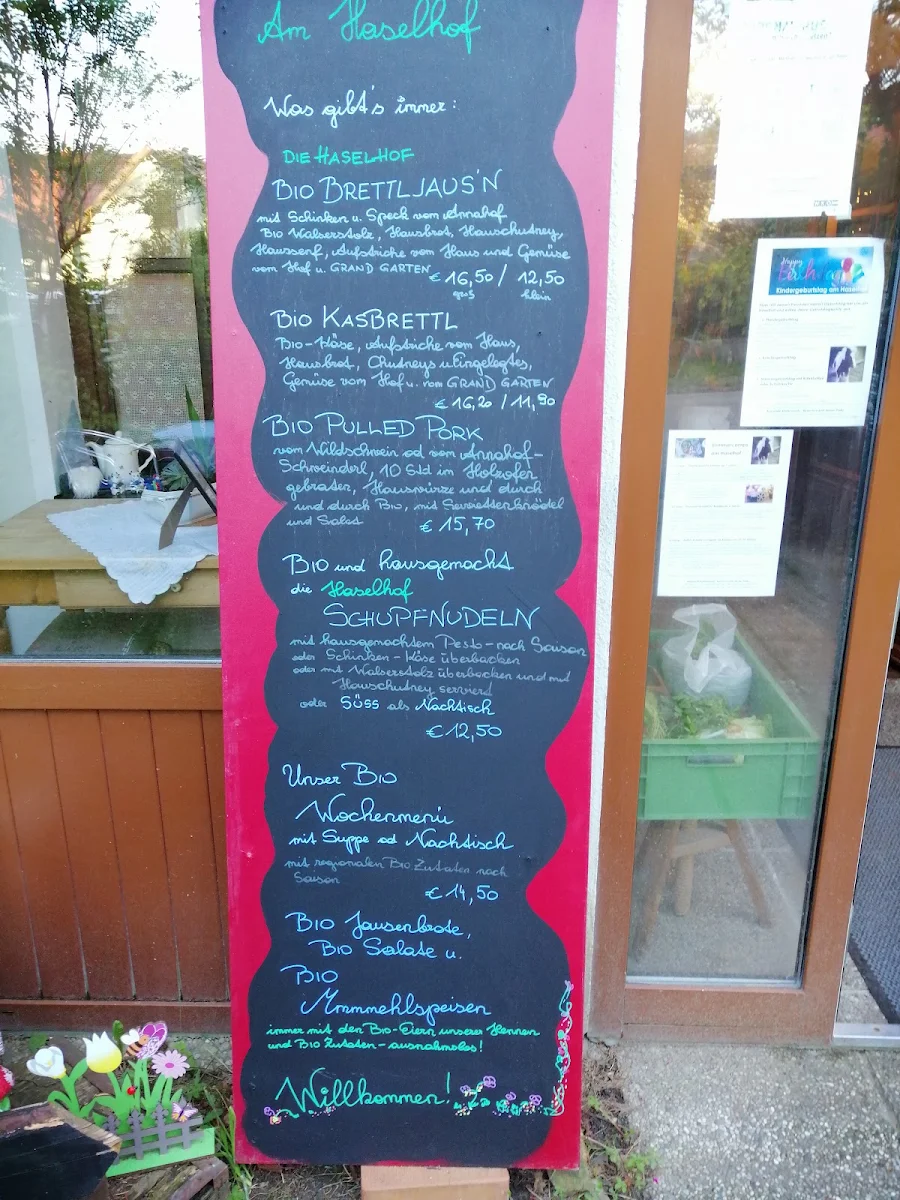 Am Haselhof
Was gibt's immer:
DIE HASELHOF
BIO BRETTLJAUS'N
mit Schinken u. Speck vom Annahof
BIO Walserstolz, Hausbrot, Hauschutney,
Haussenf, Aufstriche vom Haus und Gemüse
vom Hof u. GRAND GARTEN € 16,50 / 12,50
groß klein
BIO KASBRETTL
BIO-Käse, Aufstriche vom Haus,
Hausbrot, Chutneys u. Eingelegtes,
Gemüse vom Hof u. vom GRAND GARTEN
€ 16,20 / 11,90
BIO PULLED PORK
vom Wildschwein od vom Annahof-
Schweinderl, 10 Std im Holzofen
gebraten, Hauswürze und durch
und durch BIO, mit Serviettenknödel
und Salat € 15,70
BIO und hausgemacht
die Haselhof
SCHUPFNUDELN
mit hausgemachtem Pesto - nach Saison
oder Schinken-Käse überbacken
oder mit Walserstolz überbacken und mit
Hauschutney serviert
oder SÜSS als Nachtisch
€ 12,50
Unser BIO
Wochenmenü
mit Suppe od Nachtisch
mit regionalen BIO Zutaten nach
Saison
€ 14,50
BIO Jausenbrote,
BIO Salate u.
BIO
Mmmmehlspeisen
immer mit den BIO-Eiern unserer Hennen
und BIO Zutaten - ausnahmslos!
Willkommen!
Happy
Kindergeburtstag am